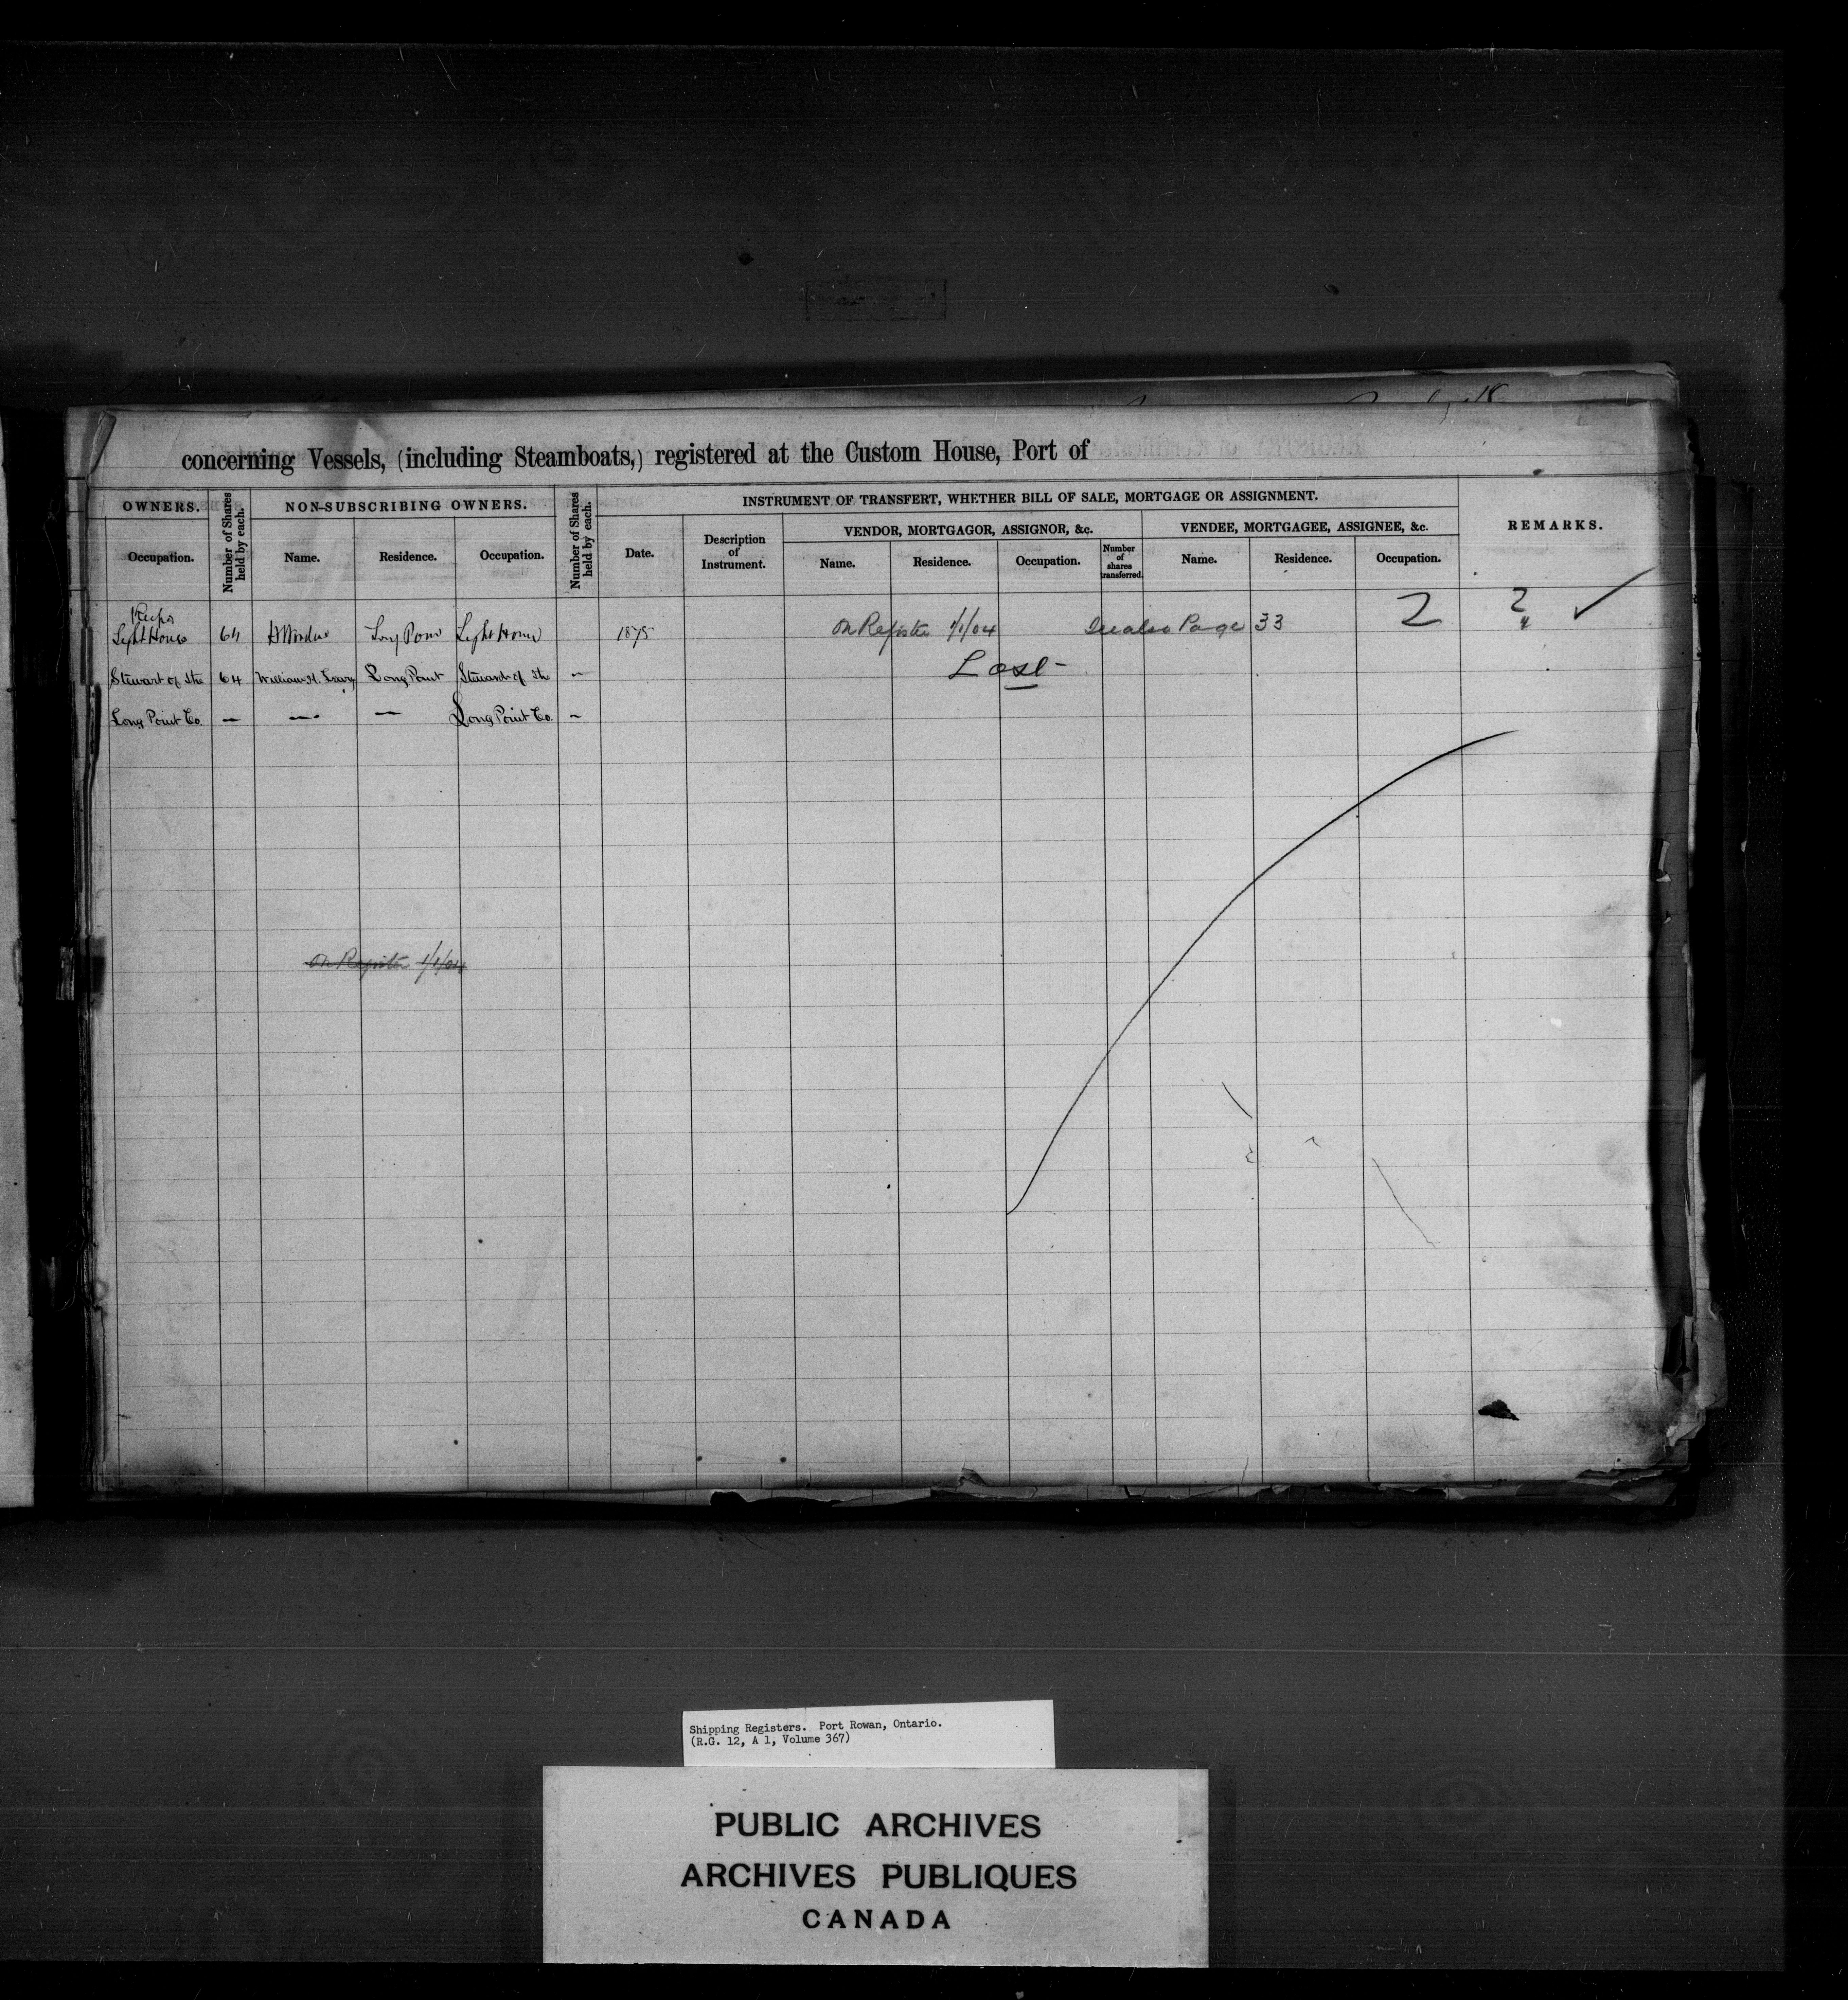 concerning Vessels, (including Steamboats,) registered at the Custom House, Port of
OWNERS.
Number of Shares held by each.
NON-SUBSCRIBING OWNERS.
Number of Shares held by each.
INSTRUMENT OF TRANSFERT, WHETHER BILL OF SALE, MORTGAGE OR ASSIGNMENT.
REMARKS.
VENDOR, MORTGAGOR, ASSIGNOR, &c.
VENDEE, MORTGAGEE, ASSIGNEE, &c.
Occupation.
Name.
Residence.
Occupation.
Date.
Description
of
Instrument.
Name.
Residence.
Occupation.
Number
of
shares
transferred.
Name.
Residence.
Occupation.
Light House 64 Long Point Light House 1875 On Register 1/1/04 See also Page 33 2 2
Stewart of the 64 William H. Long Point Steward of the — Lost
Long Point Co. — — — Long Point Co. —
On Register 1/1/04
Shipping Registers. Port Rowan, Ontario.
(R.G. 12, A 1, Volume 367)
PUBLIC ARCHIVES
ARCHIVES PUBLIQUES
CANADA